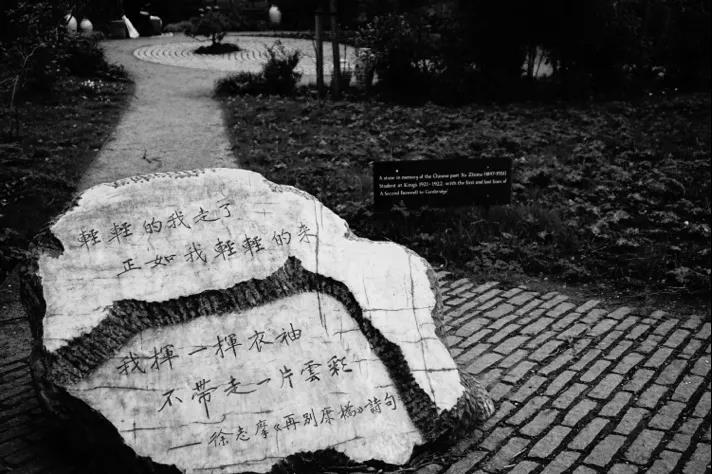 輕輕的我走了
正如我輕輕的来
我揮一揮衣袖
不带走一片雲彩
徐志摩《再别康橋》詩句
A stone in memory of the Chinese poet Xu Zhimo (1897-1931)
Student at King's 1921-1922, with the first and last lines of
A Second Farewell to Cambridge